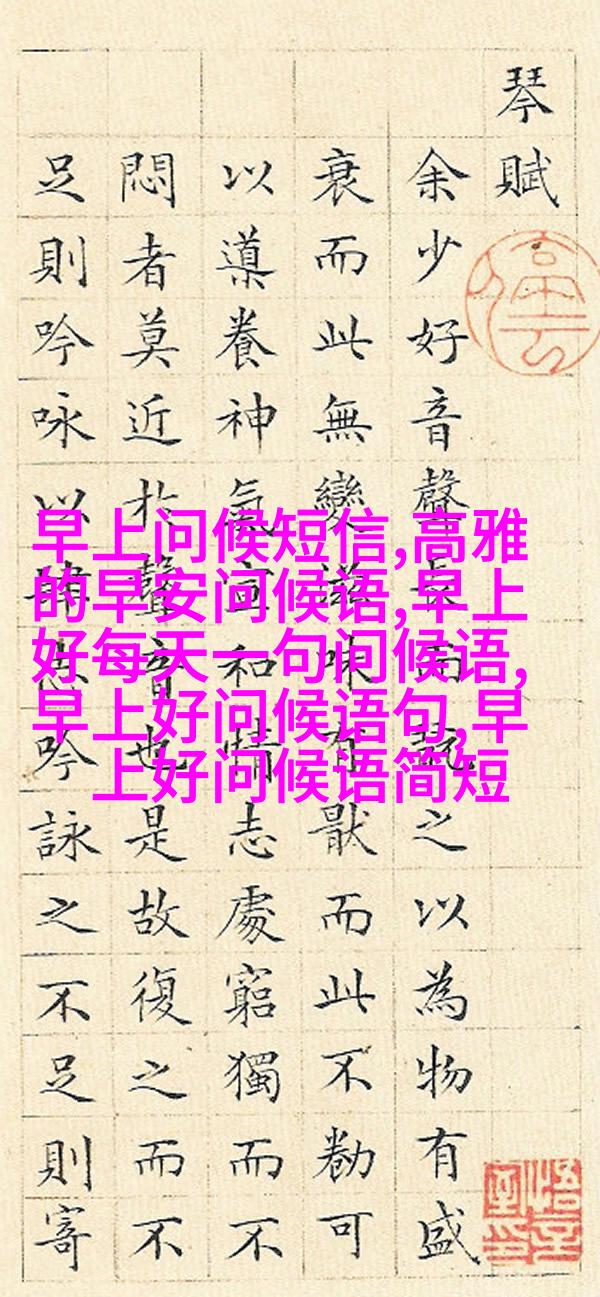 琴賦
余少好音聲長而翫之以為物有盛
衰而此無變滋味有猒而此不勌可
以導養神氣宣和情志處窮獨而不
悶者莫近於聲音也是故復之而不
足則吟咏以肆吟詠之不足則寄
早上问候短信,高雅
的早安问候语,早上
好每天一句问候语,
早上好问候语句,早
上好问候语简短